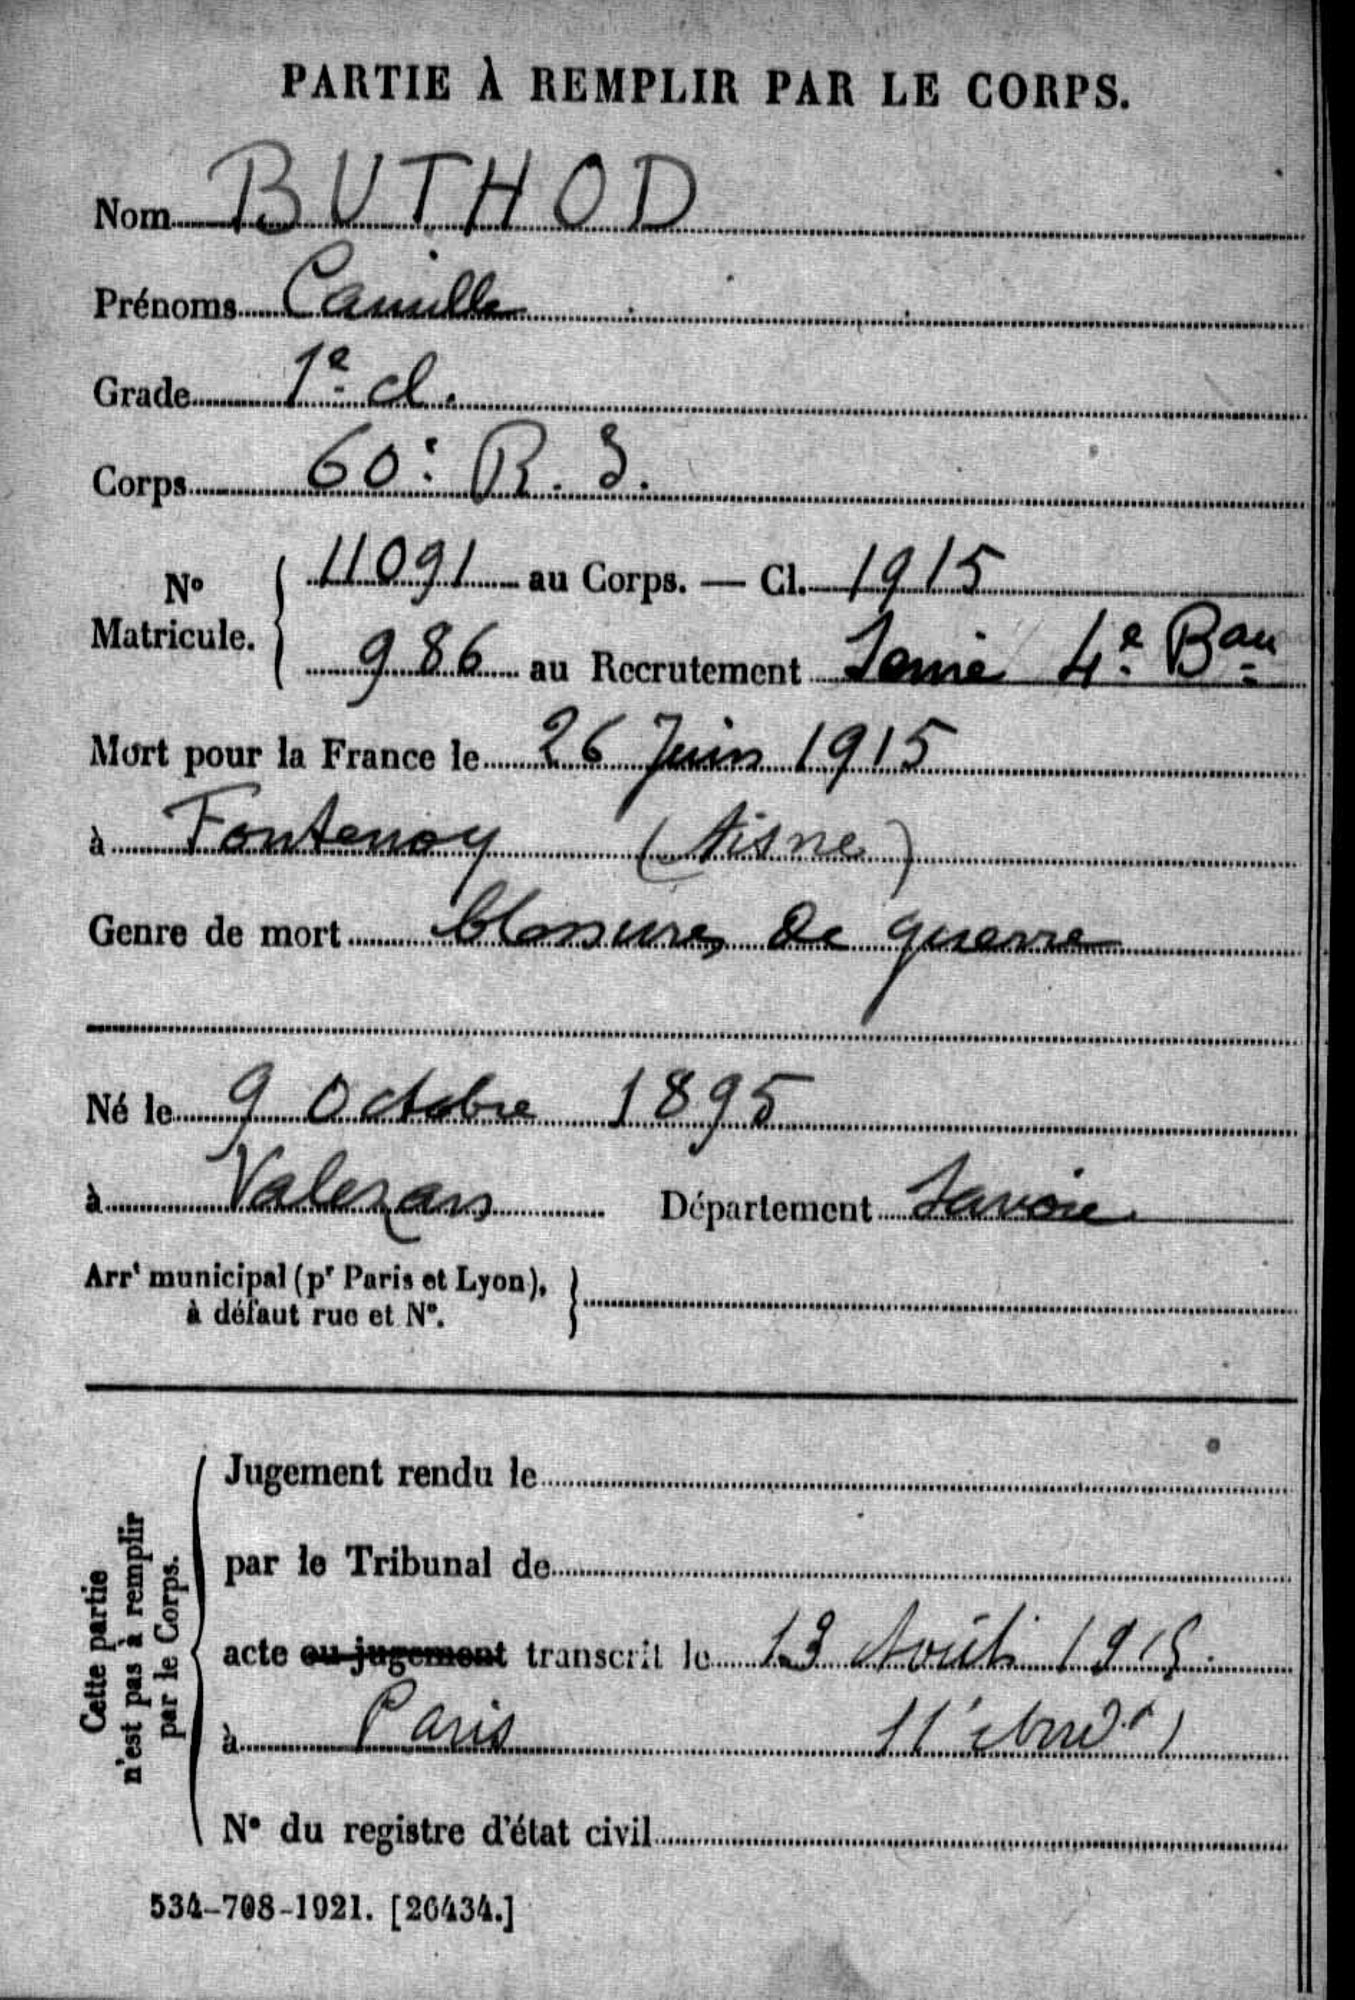 PARTIE À REMPLIR PAR LE CORPS.
Nom BUTHOD
Prénoms Camille
Grade 1e cl.
Corps 60e R. I.
No Matricule. 11091 au Corps. — Cl. 1915
986 au Recrutement Seine 4e Bau
Mort pour la France le 26 Juin 1915
à Fontenoy (Aisne)
Genre de mort blessures de guerre
Né le 9 Octobre 1895
à Valezan Département Savoie
Arrt municipal (pr Paris et Lyon),
à défaut rue et No.
Cette partie n'est pas à remplir par le Corps.
Jugement rendu le
par le Tribunal de
acte ou jugement transcrit le 13 Août 1915.
à Paris 11e
No du registre d'état civil
534-708-1921. [26434.]